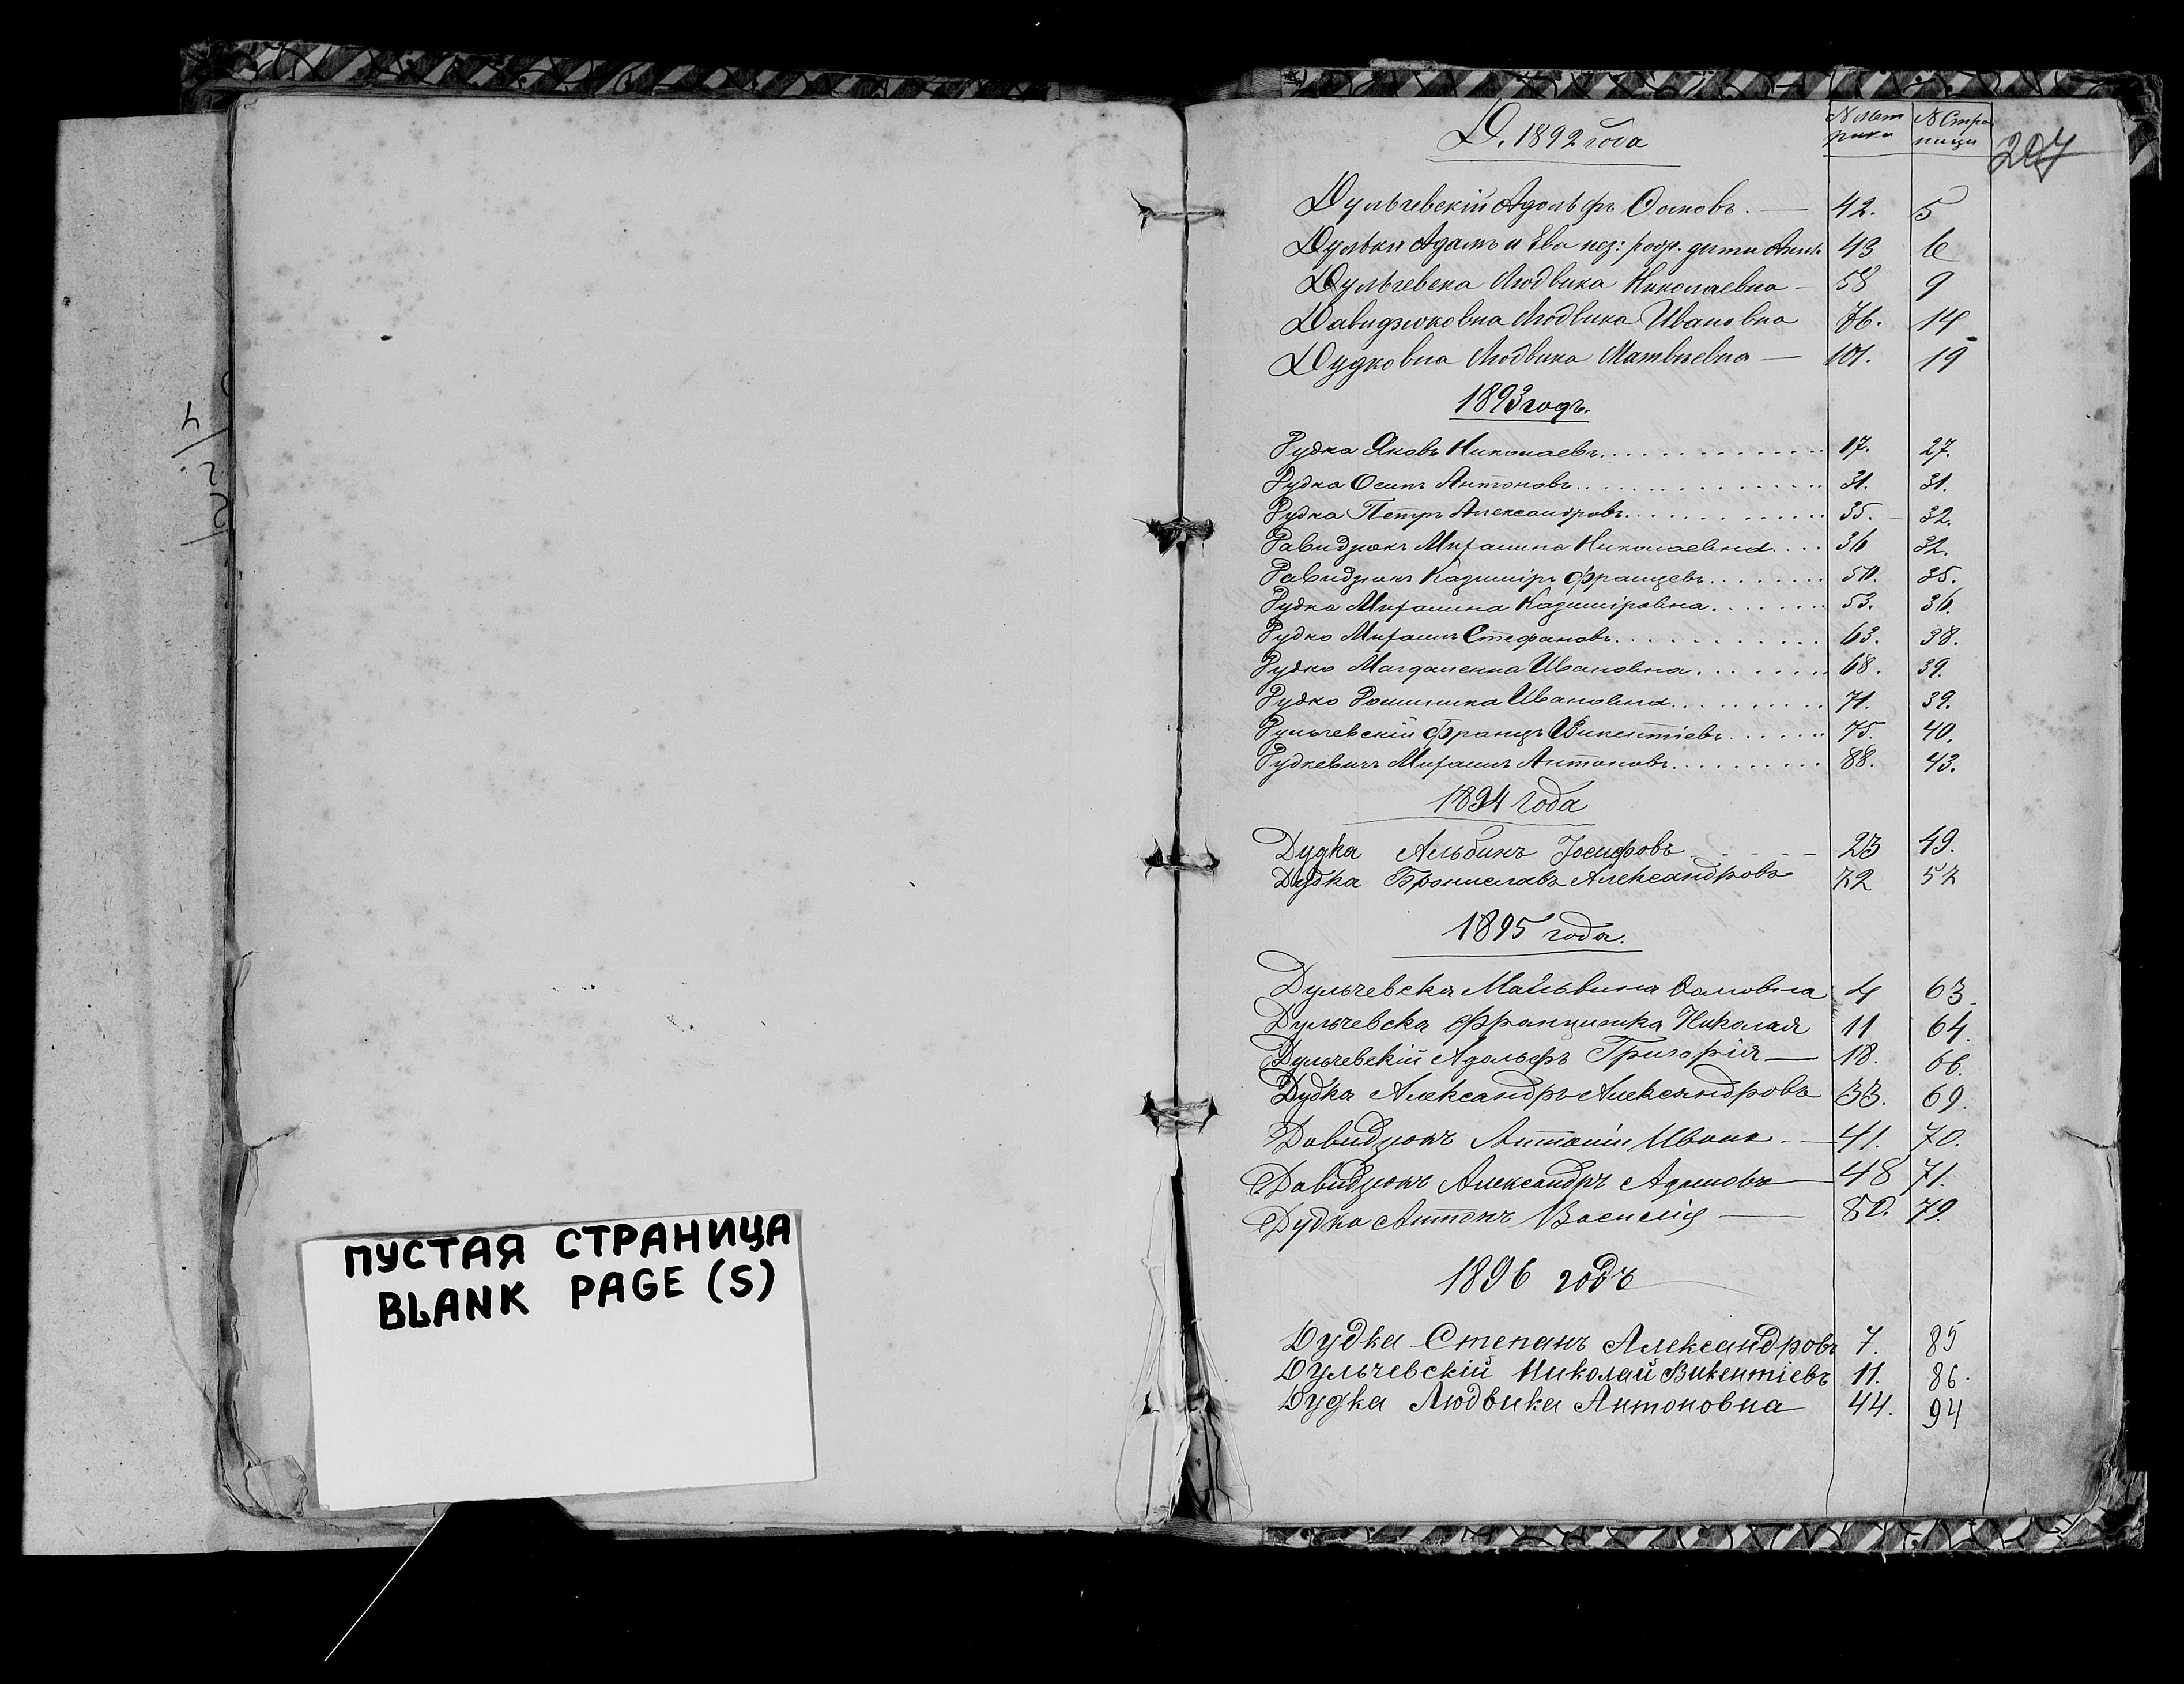 ПУСТАЯ СТРАНИЦА
BLANK PAGE (S)
Д. 1892 года
№ Мет рики
№ Стра ницы
207
Дульчевскій Адольфъ Осиповъ. — 42. 5
Адамъ и Ева 43 6
Дульчевска Людвика Николаевна — 58 9
Давидзюковна Людвика Ивановна 76. 14
Дудковна Людвика Матвѣевна — 101. 19
1893 годъ.
Дудка Яковъ Николаевъ 17. 27.
Дудка Осипъ Антоновъ 31. 31.
Дудка Петръ Александровъ 35. 32.
Давидзюкъ Михалина Николаевна 36 32.
Давидзюкъ Казиміръ Францевъ 50. 35.
Дудка Михалина Казиміровна 53. 36.
Дудко Михаилъ Стефановъ 63. 38.
Дудко Магдаленна Ивановна 68. 39.
Дудко Доминика Ивановна 71. 39.
Дульчевскій Францъ Викентіевъ 75. 40.
Дудкевичъ Михаилъ Антоновъ 88. 43.
1894 года
Дудка Альбинъ Іосифовъ 23 49.
Дудка Брониславъ Александровъ 72 57
1895 года.
Дульчевска Мальвина 4 63.
Дульчевска Францишка Николая 11 64.
Дульчевскій Адольфъ Григорія — 18. 66.
Дудка Александръ Александровъ 33. 69.
Давидзюкъ Антоній Ивана — 41. 70.
Давидзюкъ Александръ Адамовъ — 48 71.
Дудка Антонъ Василія — 80. 79.
1896 годъ
Дудка Степанъ Александровъ 7. 85
Дульчевскій Николай Викентіевъ 11. 86.
Дудка Людвика Антоновна 44. 94